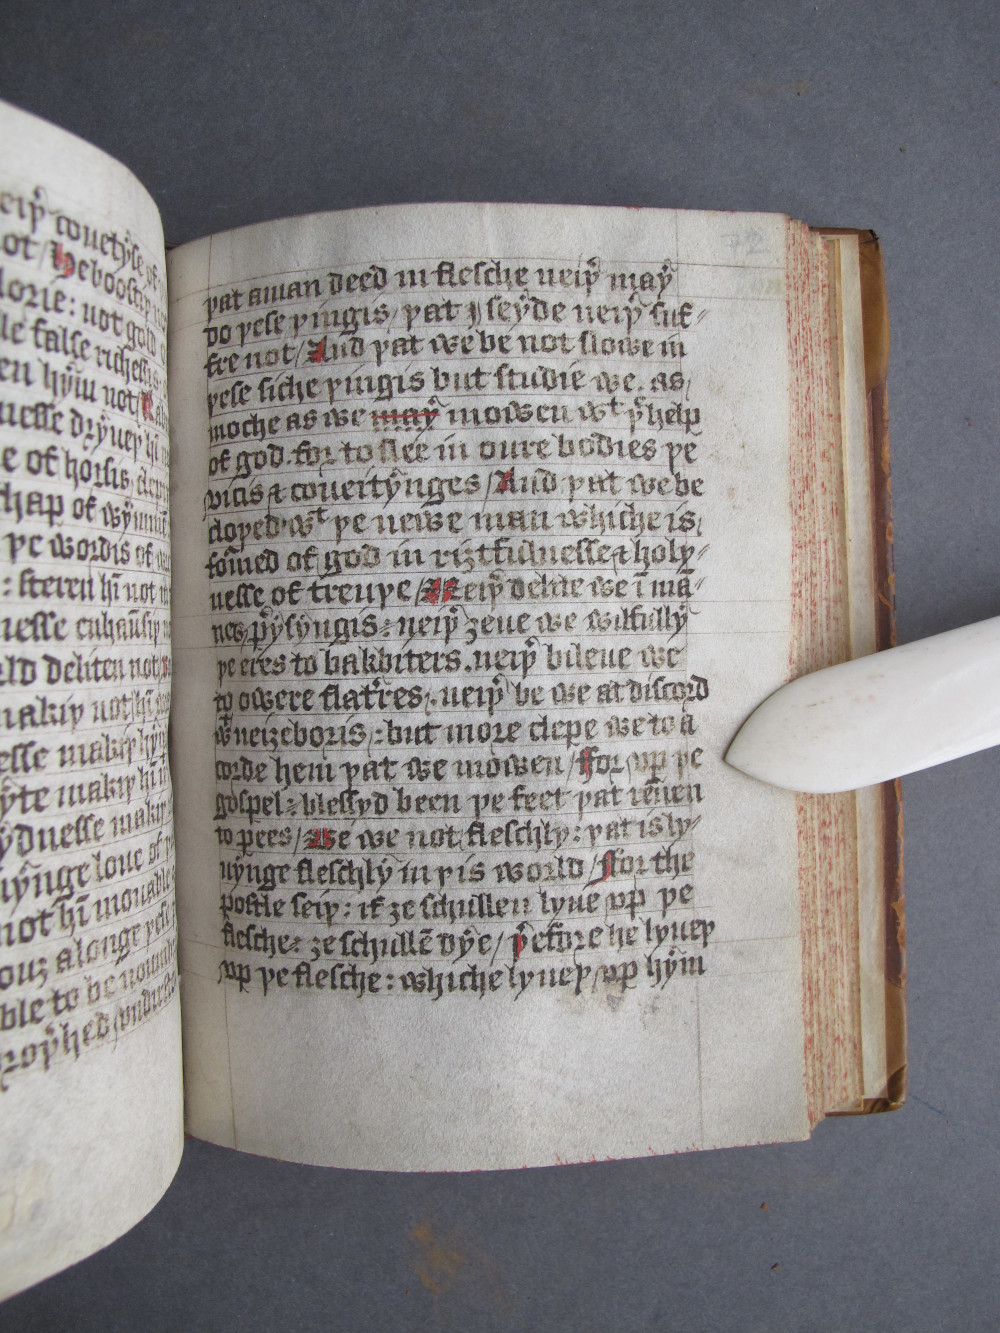 eiþ couetyse of
ot / He boostiþ
lorie : not gold
le false richessis
en hym not /
nesse dryueþ hī
e of horsis
chap of wymmē
þe wordis of
: steren hī not
nesse enhaūsiþ
rld deliten not
makiþ not hī
esse makiþ hȳ
yte makiþ hī
ydnesse makiþ
iynge loue of
not hī mouable
ouȝ alonge
ble to be
undirst
72
þat aman deed in flesche neiþ̉ may
do þese þingis / þat I seyde neiþ̉ suf-
fre not / And þat we be not slowe in
þese siche þingis but studie we. as
moche as we may mowen wᵗ þ̉ help
of god. for to slee in oure bodies þe
vicis & coueitynges / And þat we be
cloþed wᵗ þe newe man whiche is
foūmed of god in riȝtfulnesse & holy-
nesse of treuþe / Neiþ̉ delite we ī mā-
nes p̉ysyngis : neiþ̉ ȝeue we wilfully
þe eres to bakbiters. neiþ̉ bileue we
to owere flat̉res : neiþ̉ be we at discord
wᵗ neiȝeboris : but more clepe we to a
corde hem þat we mowen / For vp þe
gospel : blessyd been þe feet þat rēnen
to pees / Be we not fleschly : þat is ly-
uynge fleschly in þis world / For the
postle seiþ : if ȝe schullen lyue vp þe
flesche : ȝe schullē dye / þ̉efore he lyueþ
vp þe flesche : whiche lyueþ vp hym